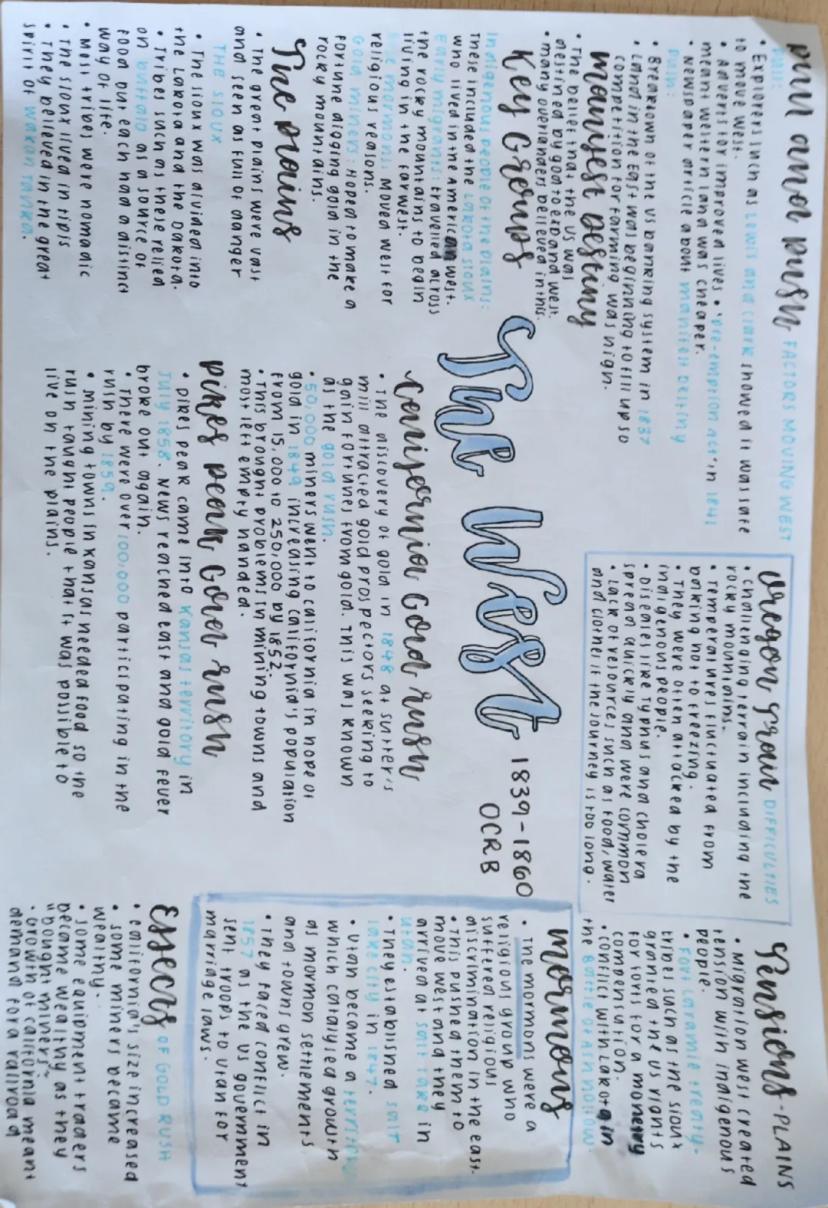 pull and push FACTORS MOVING WEST
PULL:
• Explorers such as Lewis and Clark showed it was safe
to move west.
• Adverts for improved lives • 'pre-emption act' in 1841
meant western land was cheaper.
• Newspaper article about manifest destiny
PUSH:
• Breakdown of the US banking system in 1837
• Land in the East was beginning to fill up so
competition for farming was high.
manifest destiny
• The belief that the US was
destined by god to expand west.
• many overlanders believed in this.
Key Groups
Indigenous people of the plains:
These included the Lakota Sioux
who lived in the American west.
Early migrants: travelled across
the rocky mountains to begin
living in the far west.
The mormons: Moved west for
religious reasons.
Gold miners: Hoped to make a
fortune digging gold in the
rocky mountains.
The plains
• The great plains were vast
and seen as full of danger
THE SIOUX
• The Sioux was divided into
the Lakota and the Dakota.
• Tribes such as these relied
on buffalo as a source of
food but each had a distinct
way of life.
• Most tribes were nomadic
• The Sioux lived in tipis
• They believed in the great
spirit of wakan tanka.
The West
1839-1860
OCR B
California Gold rush
• The discovery of gold in 1848 at sutter's
mill attracted gold prospectors seeking to
gain fortunes from gold. This was known
as the gold rush.
• 50,000 miners went to california in hope of
gold in 1849 increasing california's population
from 15,000 to 250,000 by 1852.
• This brought problems in mining towns and
most left empty handed.
pikes peak Gold rush
• pikes peak came into kansas territory in
July 1858. News reached east and gold fever
broke out again.
• There were over 100,000 participating in the
rush by 1859.
• Mining towns in kansas needed food so the
rush taught people that it was possible to
live on the plains.
Oregon Trail DIFFICULTIES
• challenging terrain including the
rocky mountains.
• Temperatures fluctuated from
baking hot to freezing.
• They were often attacked by the
indigenous people.
• Diseases like typhus and cholera
spread quickly and were common
• Lack of resources such as food, water
and clothes if the journey is too long.
Tensions - PLAINS
• Migration west created
tension with indigenous
people.
• Fort Laramie treaty -
tribes such as the sioux
granted the US rights
for forts for a monetary
compensation.
• conflict with Lakota in
the Battle of Ash Hollow.
mormons
• The mormons were a
religious group who
suffered religious
discrimination in the east.
• This pushed them to
move west and they
arrived at salt lake in
utah.
• They established salt
lake city in 1847.
• Utah became a territory
which catalysed growth
as mormon settlements
and towns grew.
• They faced conflict in
1857 as the US government
sent troops to Utah for
marriage laws.
Effects OF GOLD RUSH
• california's size increased
• some miners became
wealthy.
• some equipment traders
became wealthy as they
"bought miners"
• Growth of california meant
demand for a railroad